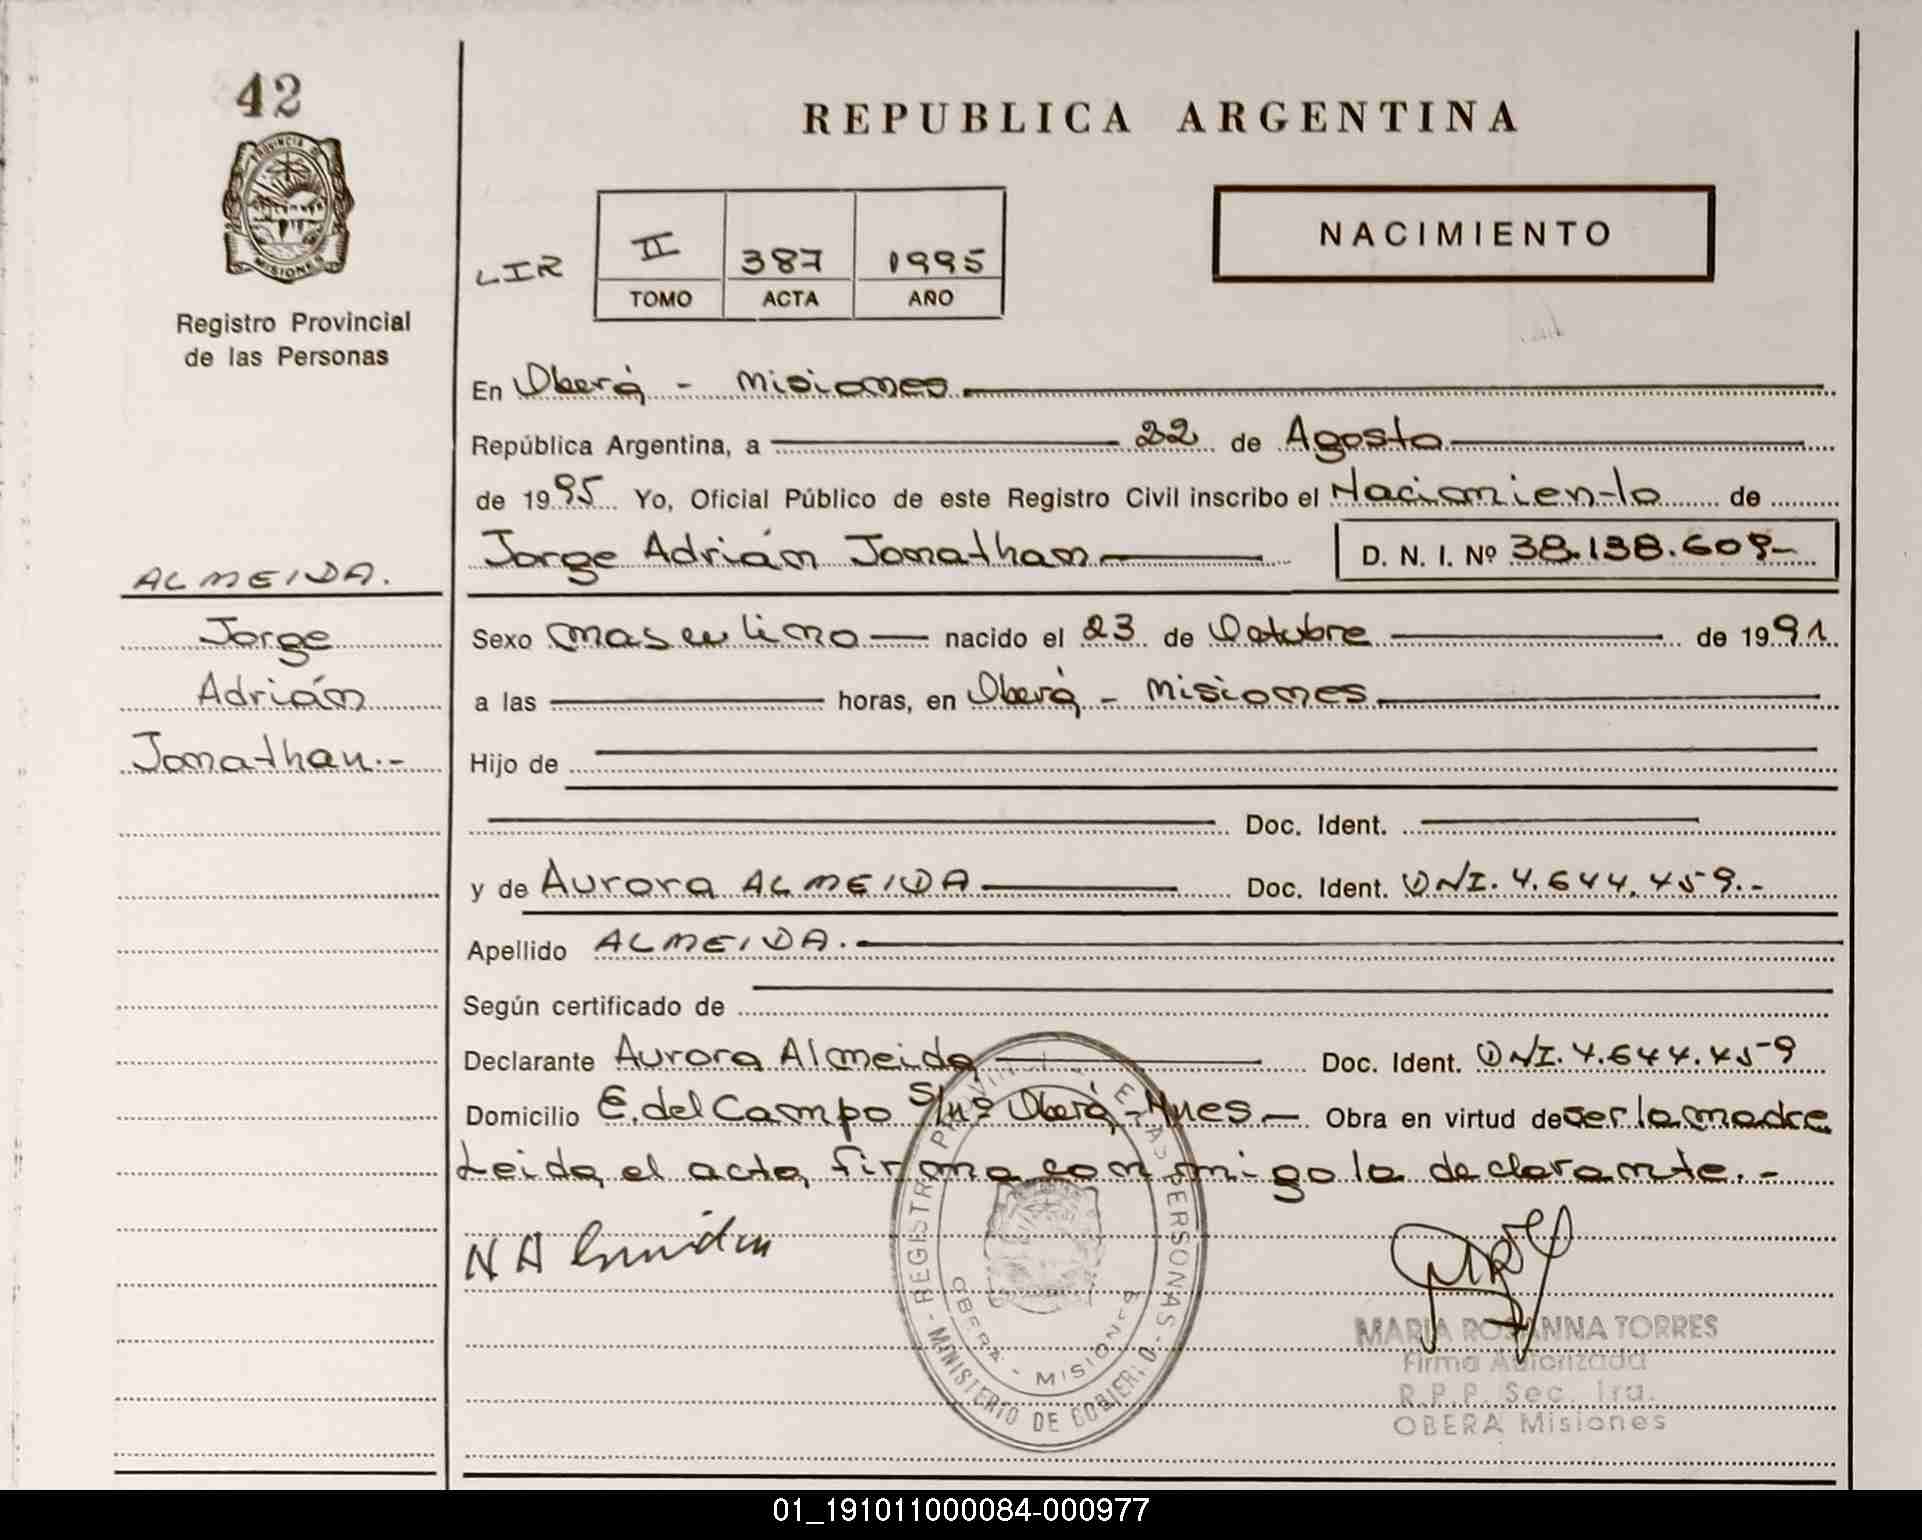 42
REPUBLICA ARGENTINA
PROVINCIA D
MISIONES
Registro Provincial
de las Personas
NACIMIENTO
LIR II 387 1995
TOMO ACTA AÑO
En Oberá - Misiones
República Argentina, a 22 de Agosto
de 1995 Yo, Oficial Público de este Registro Civil inscribo el Nacimiento de
Jorge Adrián Jonathan D. N. I. Nº 38.138.609-
ALMEIDA.
Jorge
Adrián
Jonathan.-
Sexo masculino nacido el 23 de Octubre de 1991.
a las horas, en Oberá - Misiones
Hijo de
Doc. Ident.
y de Aurora ALMEIDA Doc. Ident. DNI. 4.644.459.-
Apellido ALMEIDA.
Según certificado de
Declarante Aurora Almeida Doc. Ident. DNI. 4.644.459
Domicilio E. del Campo S/nº Oberá - Mnes Obra en virtud de ser la madre
Leida el acta, firma conmigo la declarante.-
REGISTRO PROVINCIAL PERSONAS - MINISTERIO DE GOBIERNO
OBERA - MISIONES
MARIA ROSANNA TORRES
Firma Autorizada
R.P.P. Sec. 1ra.
OBERA Misiones
01_191011000084-000977